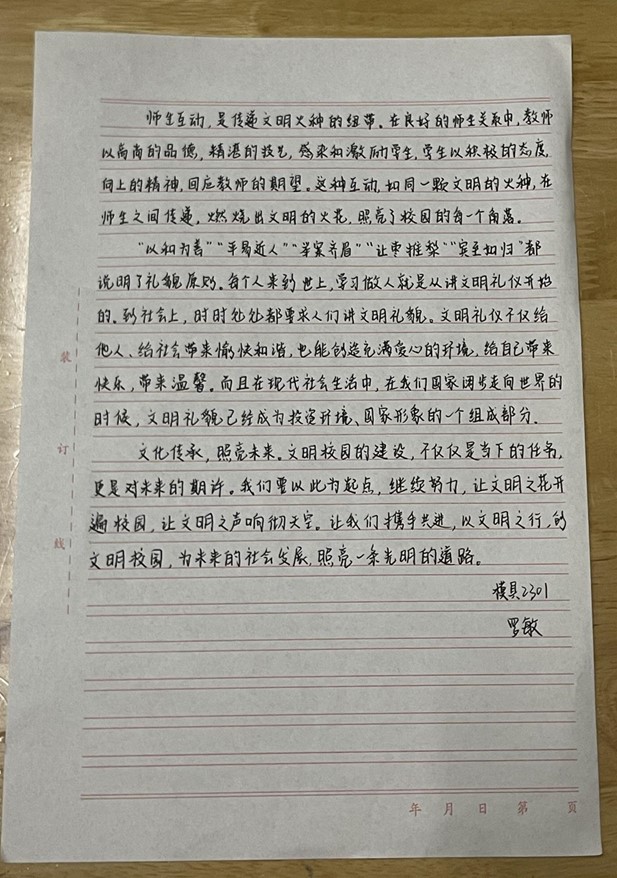 师生互动,是传递文明火种的纽带。在良好的师生关系中,教师
以高尚的品德,精湛的技艺,感染和激励学生,学生以积极的态度,
向上的精神,回应教师的期望。这种互动,如同一颗文明的火种,在
师生之间传递,燃烧出文明的火花,照亮了校园的每一个角落。
“以和为善”“平易近人”“举案齐眉”“让枣推梨”“宾至如归”都
说明了礼貌原则。每个人来到世上,学习做人就是从讲文明礼仪开始
的。到社会上,时时处处都要求人们讲文明礼貌。文明礼仪不仅给
他人、给社会带来愉快和谐,也能创造充满爱心的环境,给自己带来
快乐,带来温馨。而且在现代社会生活中,在我们国家阔步走向世界的
时候,文明礼貌已经成为投资环境、国家形象的一个组成部分.
文化传承,照亮未来。文明校园的建设,不仅仅是当下的任务,
更是对未来的期许。我们要以此为起点,继续努力,让文明之花开
遍校园,让文明之声响彻天空。让我们携手共进,以文明之行,创
文明校园,为未来的社会发展,照亮一条光明的道路。
模具2301
罗敏
装
订
线
年 月 日 第 頁